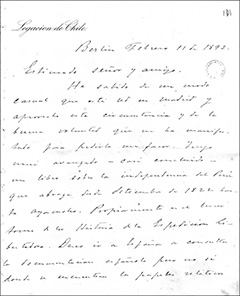 Legacion de Chile
Berlin Febrero 11 de 1893.
Estimado señor y amigo.
Ha sabido de un modo
casual que está Ud en Madrid y
aprovecho esta circunstancia y de la
buena voluntad que me ha manifes-
tado para pedirle un favor. Tengo
muy avanzado o casi concluido
un libro sobre la independencia del Perú
que abraza desde Setiembre de 1820 hasta
Ayacucho. Propiamente es el
de la Historia de la Expedicion Li-
bertadora. Deseo ir a España a consultar
la documentacion española pero no sé
donde se encuentran los papeles relativos